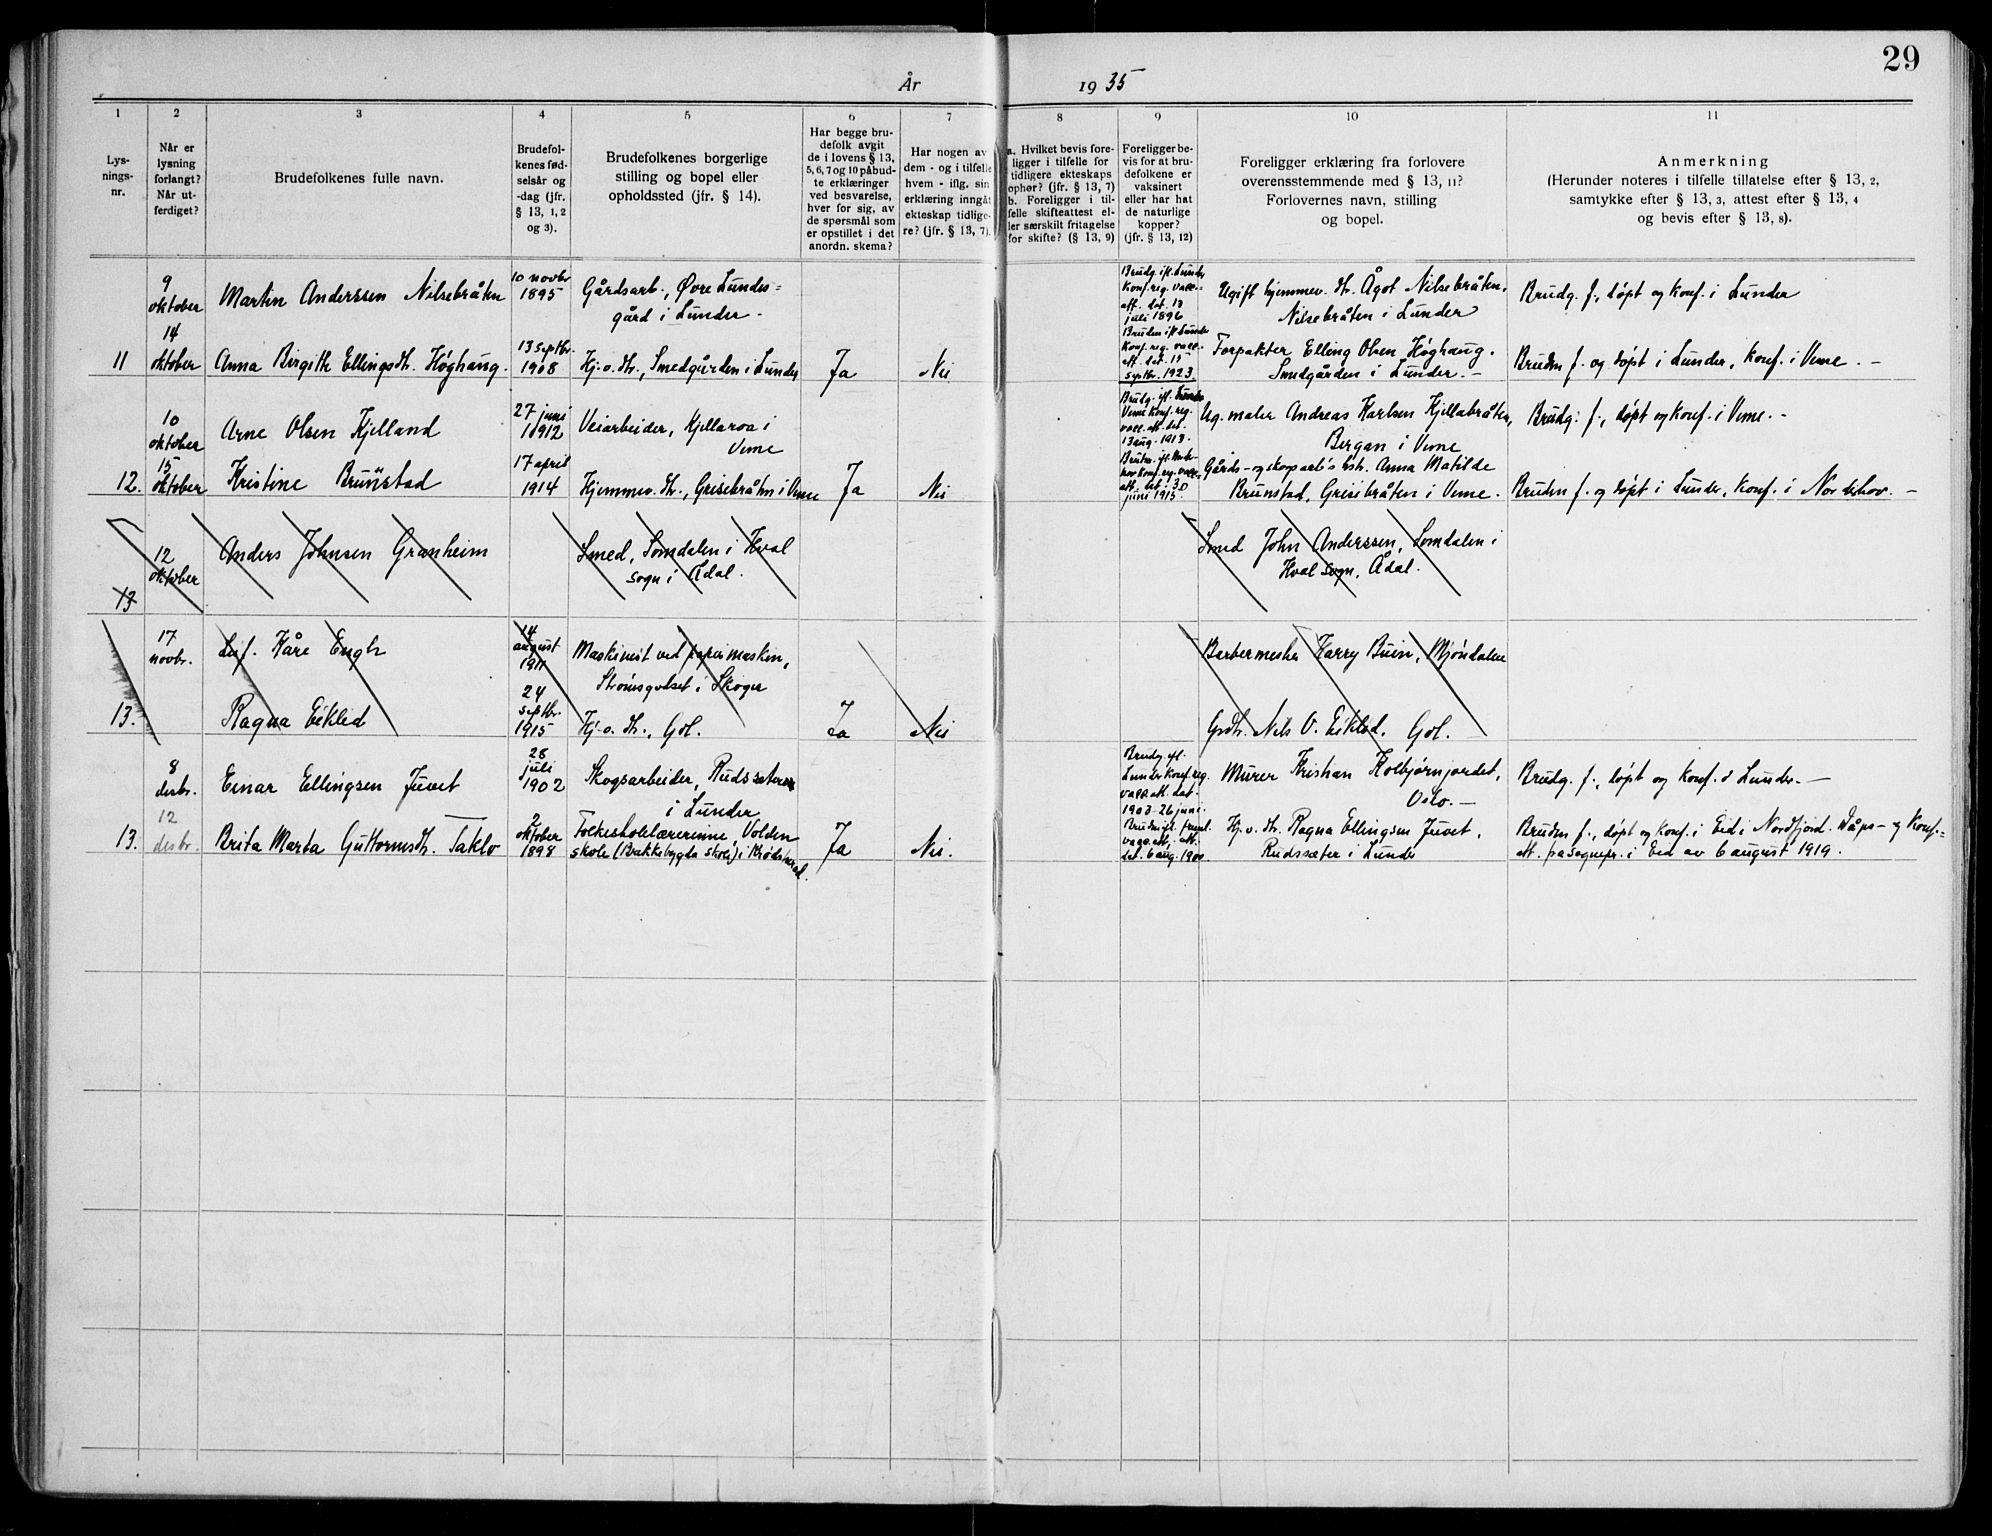 29
År 1935
1 2 3 4 5 6 7 8 9 10 11
Lys-
nings-
nr.
Når er
lysning
forlangt?
Når ut-
ferdiget?
Brudefolkenes fulle navn.
Brudefol-
kenes fød-
selsår og
-dag (jfr.
§ 13, 1, 2
og 3).
Brudefolkenes borgerlige
stilling og bopel eller
opholdssted (jfr. § 14).
Har begge bru-
defolk avgit
de i lovens § 13,
5, 6, 7 og 10 påbud-
te erklæringer
ved besvarelse,
hver for sig, av
de spørsmål som
er opstillet i det
anordn. skema?
Har nogen av
dem - og i tilfelle
hvem - iflg. sin
erklæring inngåt
ekteskap tidlige-
re? (jfr. § 13, 7).
a. Hvilket bevis fore-
ligger i tilfelle for
tidligere ekteskaps
ophør? (jfr. § 13, 7)
b. Foreligger i til-
felle skifteattest el-
ler særskilt fritagelse
for skifte? (§ 13, 9)
Foreligger be-
vis for at bru-
defolkene er
vaksinert
eller har hat
de naturlige
kopper?
(jfr. § 13, 12)
Foreligger erklæring fra forlovere
overensstemmende med § 13, 11?
Forlovernes navn, stilling
og bopel.
Anmerkning
(Herunder noteres i tilfelle tillatelse efter § 13, 2,
samtykke efter § 13, 3, attest efter § 13, 4
og bevis efter § 13, 8).
9
oktober
Martin Anderssen Nilsebråten
10 novbr
1895
Gårdsarb., Øvre Lundes-
gård i Lunder.
Brudg. ifl. Lunder
Konf. reg. vacc.-
att. dat. 13
juli 1896
Ugift hjemmev. dtr. Ågot Nilsebråten,
Nilsebråten i Lunder
Brudg. f., døpt og konf. i Lunder
11
14
oktober
Anna Birgith Ellingsdtr. Høghaug.
13 septbr.
1908
Hj. o. dtr., Smedgården i Lunder
Ja
Nei
Bruden ifl. Lunder
Konf. reg. vacc.-
att. dat. 15
septbr. 1923.
Forpakter Elling Olsen Høghaug.
Smedgården i Lunder.-
Bruden f. og døpt i Lunder, konf. i Veme. -
10
oktober
Arne Olsen Kjelland
27 juni
1912
Veiarbeider, Kjellaroa i
Veme
Brudg. ifl.
Veme konf. reg.
vacc. att. dat.
13 aug. 1913.
Ug. maler Andreas Karlsen Kjellabråten,
Bergan i Veme
Brudg. f., døpt og konf. i Veme. -
12.
15
oktober
Kristine Brunstad
17 april
1914
Hjemmev. dtr., Grisebråten i Veme
Ja
Nei
Bruden ifl. Norde-
hov konf. reg. vacc.-
att. dat. 30
juni 1915.
Gårds- og skogsarb's hstr. Anna Matilde
Brunstad, Grisebråten i Veme.
Bruden f. og døpt i Lunder, konf. i Norderhov. -
13
12
oktober
Anders Johnsen Granheim
Smed, Somdalen i Hval
sogn i Ådal.
Smed John Anderssen, Somdalen i
Hval sogn, Ådal.
17
novbr.
Leif Kåre Engh
14
august
1911
Maskinist ved papirmaskin,
Strømsgodset i Skoger
Barbermester Harry Buin, Mjøndalen
13.
Ragna Eiklid
24
septbr.
1915
Hj. o. dtr., Gol.
Ja
Nei
Grdbr. Nils O. Eiklid, Gol.
8
desbr.
Einar Ellingsen Juvet
28
juli
1902
Skogsarbeider, Rudsseteren
i Lunder
Brudg. ifl.
Lunder konf. reg.
vacc. att. dat.
1903 26 juni.
Murer Kristian Kolbjørnjordet,
Oslo.-
Brudg. f., døpt og konf. i Lunder.-
13.
12
desbr.
Brita Marta Guttormsdtr. Taklo
2
oktober
1898
Folkeskolelærerinne, Volden
skole (Bakkebygda skole) i Krødsherad.
Ja
Nei.
Bruden ifl. freml.
vacc. att.
dat. 6 aug. 1900
Hj. v. dtr. Ragna Ellingsen Juvet,
Rudssæter i Lunder
Bruden f., døpt og konf. i Eid i Nordfjord. Dåps- og konf.-
att. fra sognepr. i Eid av 6 august 1919.